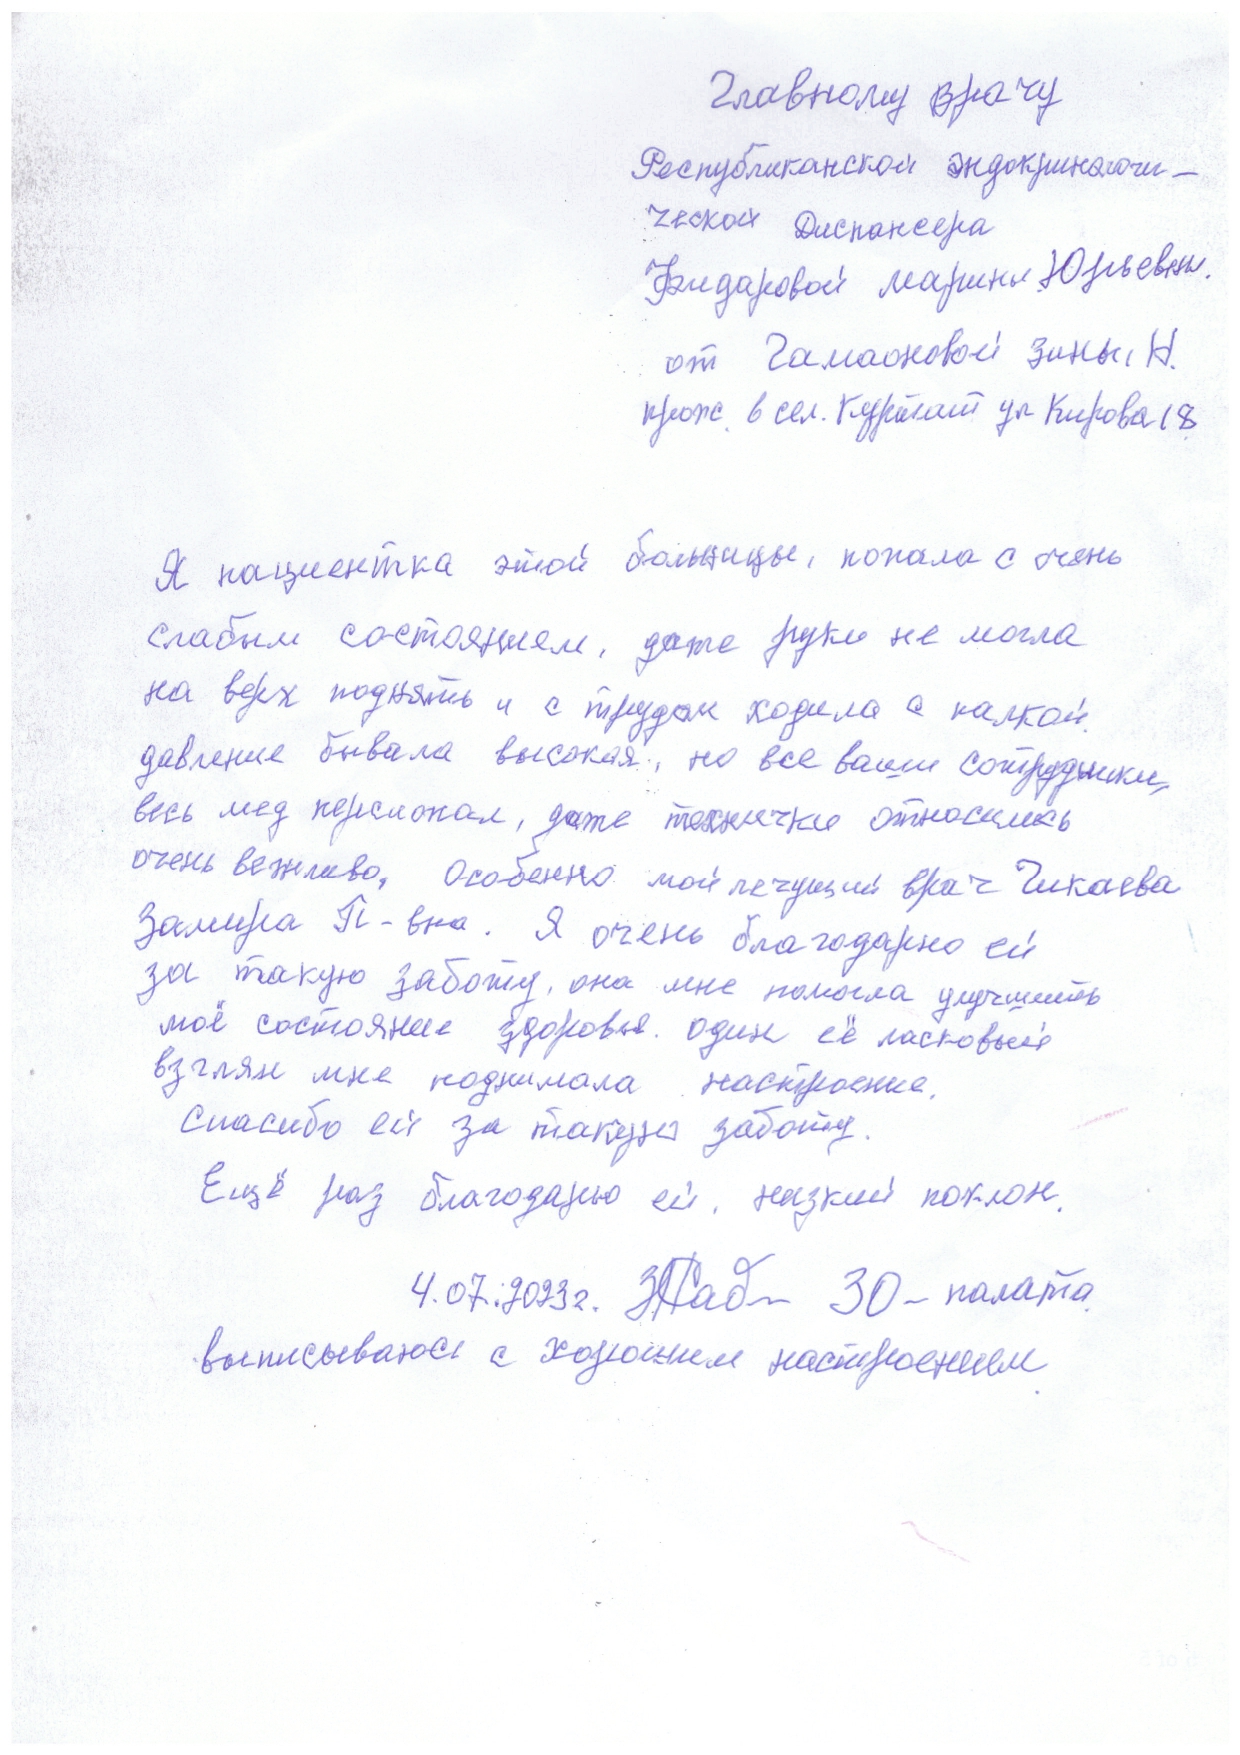 Главному врачу
Республиканской эндокриналоги-
ческой Диспансера
Фидаровой Марины Юрьевны.
от Зины Н.
прож. в сел. Куртат ул Кирова 18
Я пациентка этой больницы, попала с очень
слабым состоянием, даже руки не могла
на верх поднять и с трудом ходила с палкой.
давление бывала высокая, но все ваши сотрудники,
весь мед персионал, даже технички относились
очень вежливо, Особенно мой лечущий врач Чикаева
Замира П-вна. Я очень благодарно ей
за такую заботу, она мне помогла улучшить
моё состояние здоровье. один её ласковый
взглян мне поднимала настроение.
Спасибо ей за такую заботу.
Ещё раз благодарю ей, низкий поклон.
4.07.2023г. 30 - палата.
выписываюсь с хорошим настроением.